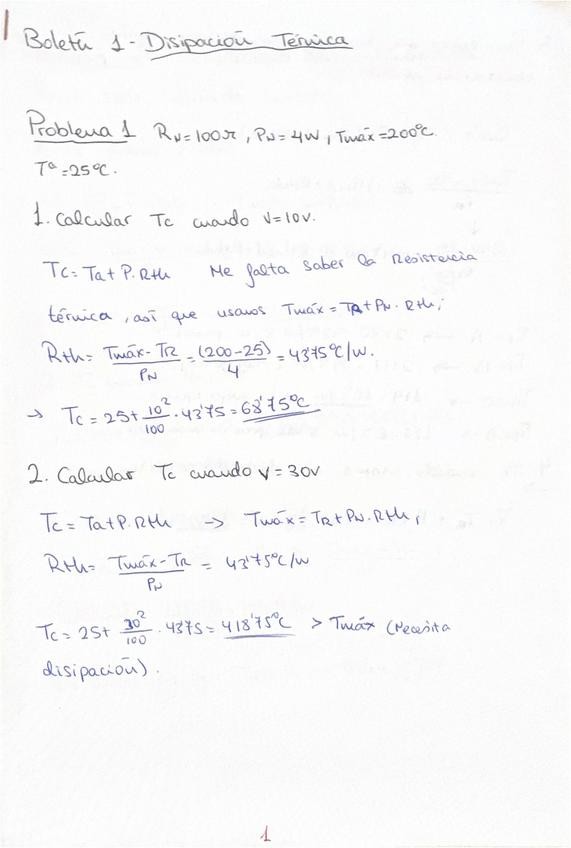 Boletín 1 - Disipación Térmica
Problema 1 RN=100Ω, PN=4W, Tmáx=200ºC.
Tª=25ºC.
1. Calcular Tc cuando V=10V.
Tc=Ta+P.Rth Me falta saber la Resistencia
térmica, así que usamos Tmáx=TR+PN.Rth;
Rth= Tmáx-TR/PN = (200-25)/4 = 43'75ºC/W.
→ Tc=25+ 10²/100 · 43'75 = 68'75ºC
2. Calcular Tc cuando V=30V
Tc=Ta+P.Rth → Tmáx=TR+PN.Rth;
Rth= Tmáx-TR/PN = 43'75ºC/W
Tc=25+ 30²/100 · 43'75= 418'75ºC > Tmáx (Necesita
disipación).
1